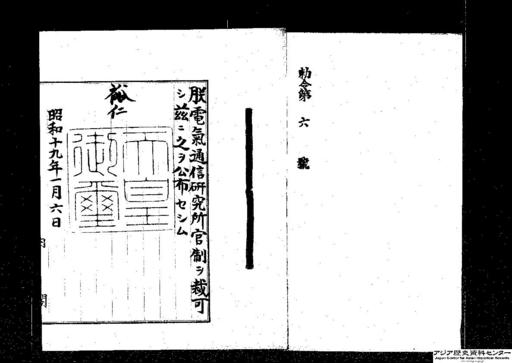 勅令第六號
朕電氣通信研究所官制ヲ裁可
シ茲ニ之ヲ公布セシム
裕仁
天皇御璽
昭和十九年一月六日
アジア歴史資料センター
Japan Center for Asian Historical Records